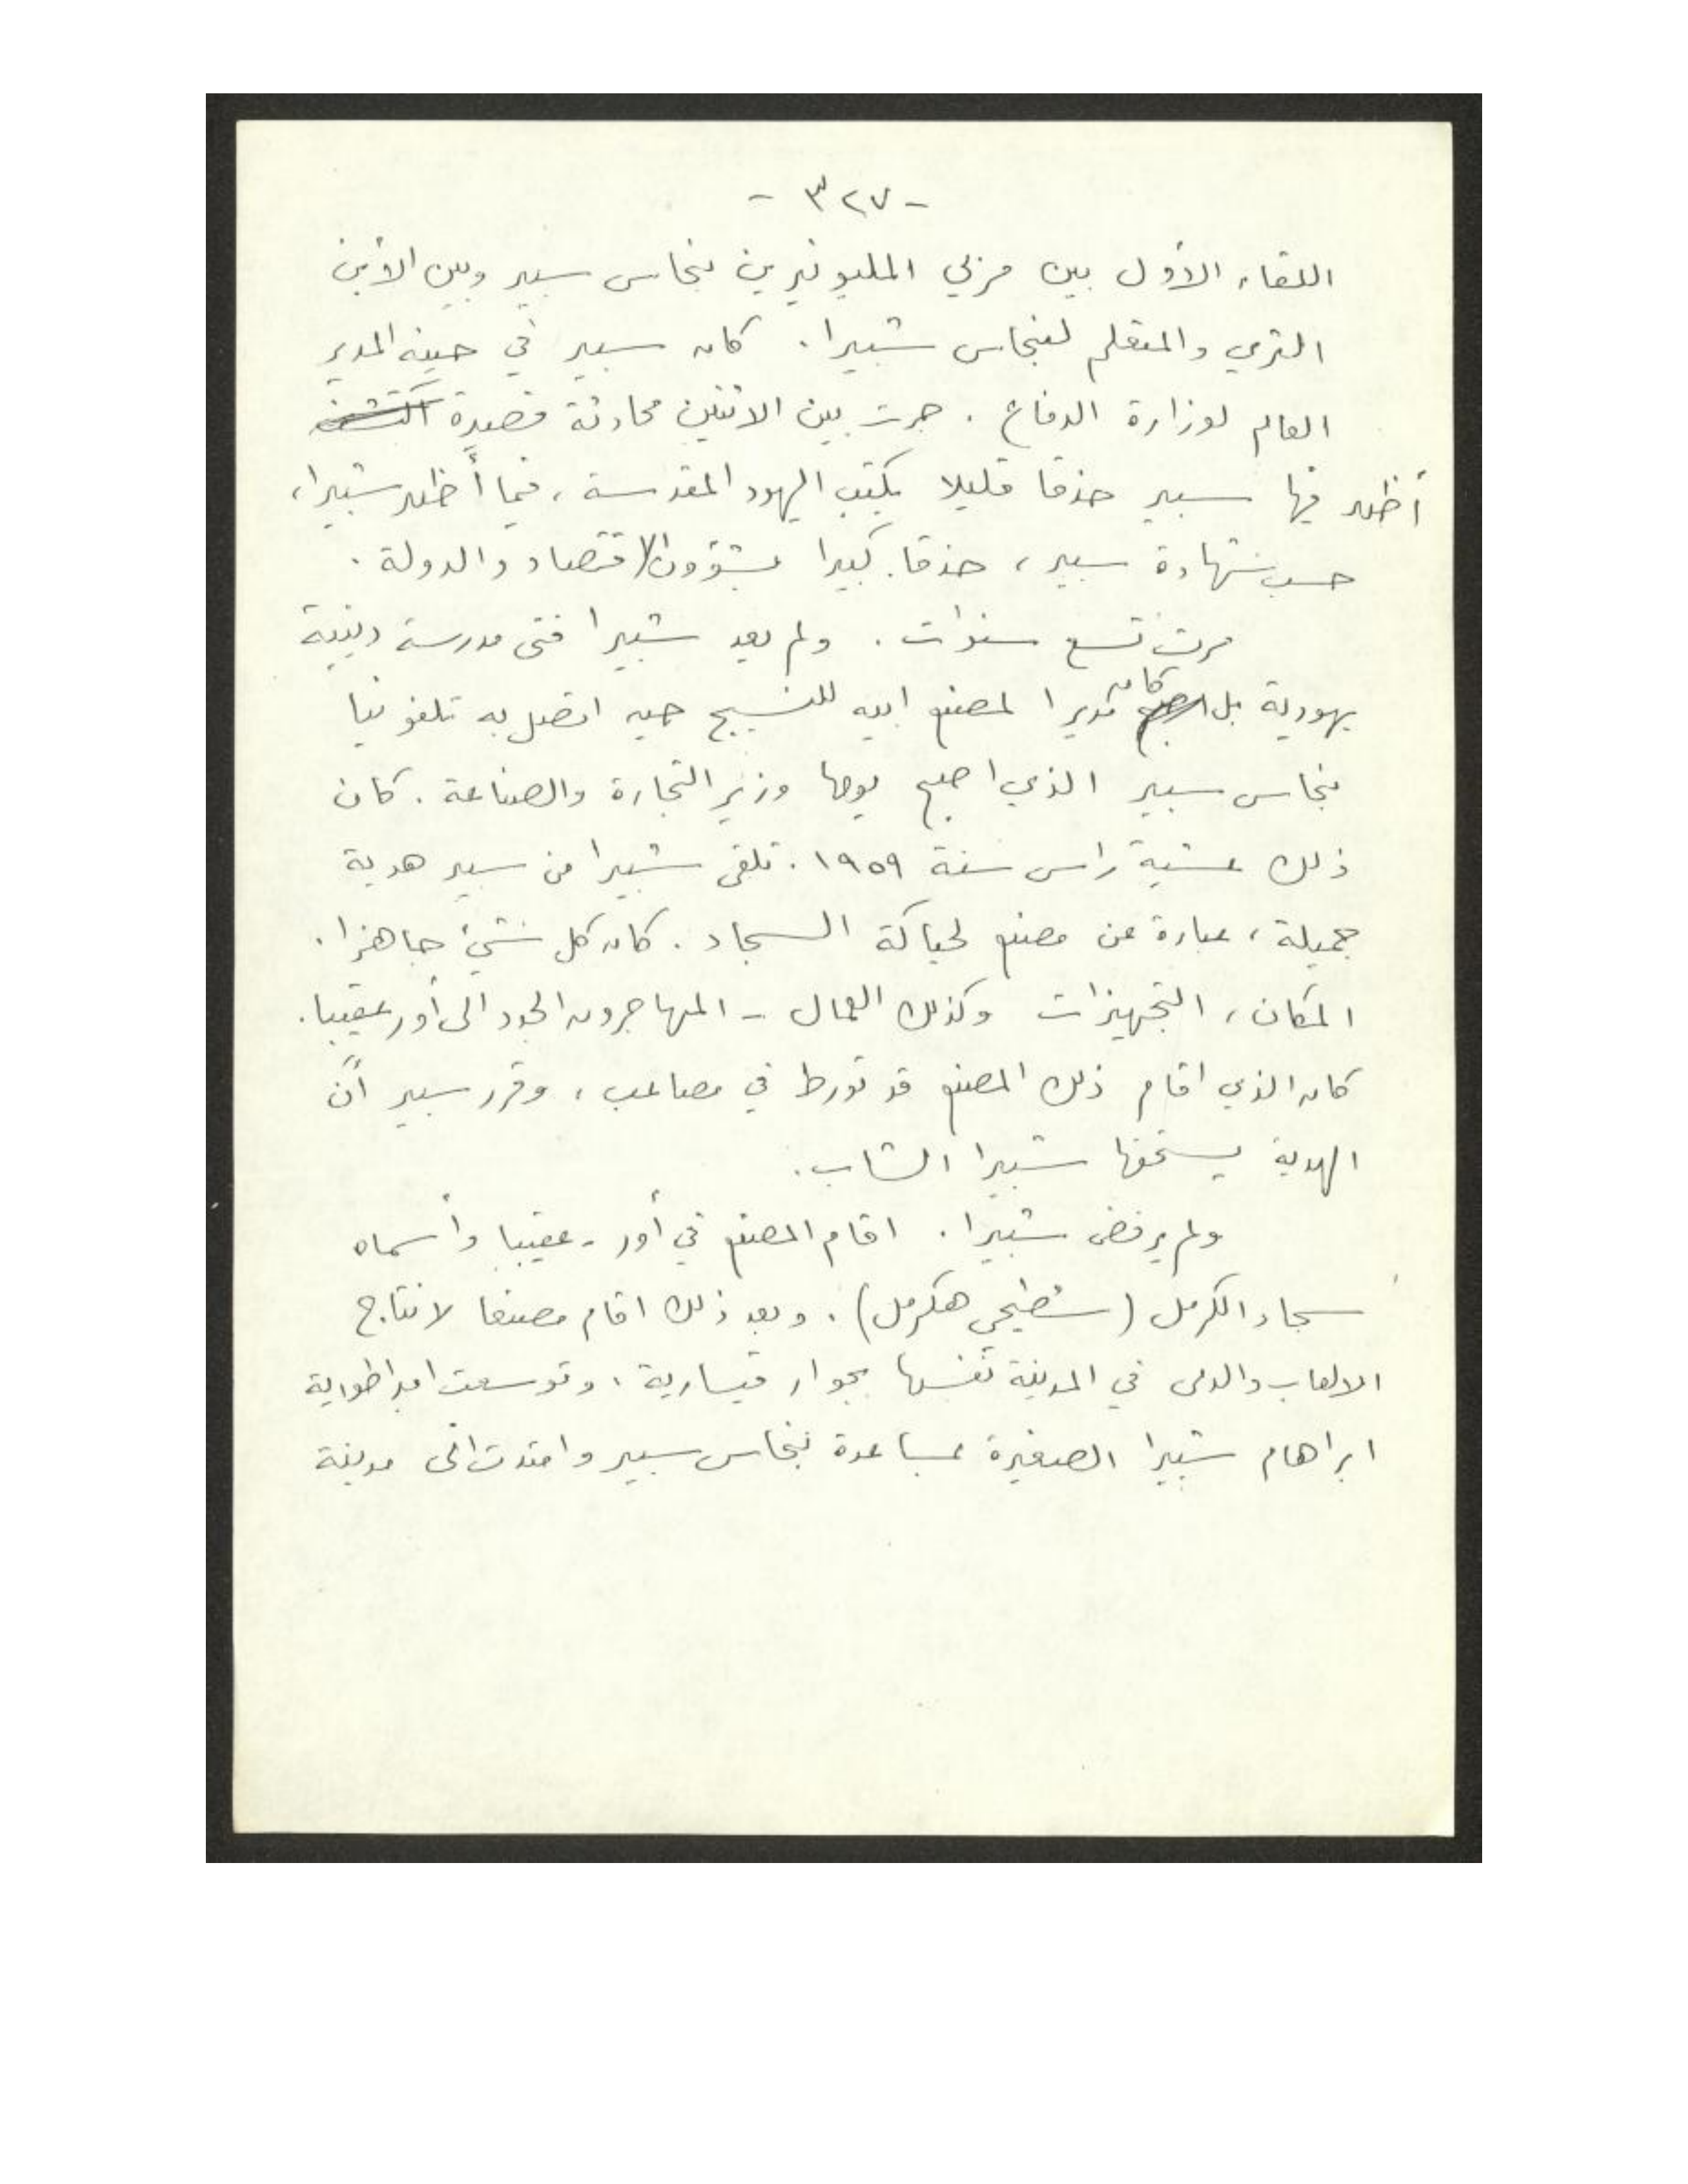 - ٣٢٧ -
اللقاء الأول بين مربي المليونيرين بنحاس سبير وبين الأبن
الثري والمتعلم لبنحاس شبيرا. كان سبير في حينه المدير
العام لوزارة الدفاع. جرت بين الاثنين محادثة قصيرة
أظهر فيها سبير حذقا قليلا بكتب اليهود المقدسة، فيما أظهر شبيرا،
حسب شهادة سبير، حذقا كبيرا بشؤون الاقتصاد والدولة.
مرت تسع سنوات. ولم يعد شبيرا فتى مدرسة دينية
يهودية بل كان مديرا لمصنع ابيه للنسيج حين اتصل به تلفونيا
بنحاس سبير الذي اصبح يومها وزير التجارة والصناعة. كان
ذلك عشية راس سنة ١٩٥٩. تلقى شبيرا من سبير هدية
جميلة، عبارة عن مصنع لحياكة السجاد. كان كل شيئ جاهزا.
المكان، التجهيزات وكذلك العمال - المهاجرون الجدد الى أور عقيبا.
كان الذي اقام ذلك المصنع قد تورط في مصاعب، وقرر سبير أنّ
الهدية يستحقها شبيرا الشاب.
ولم يرفض شبيرا. اقام المصنع في أور - عقيبا وأسماه
سجاد الكرمل (شطيحي هكرمل). وبعد ذلك اقام مصنعا لانتاج
الالعاب والدمى في المدينة نفسها بجوار قيسارية. وتوسعت امبراطورية
ابراهام شبيرا الصغيرة بمساعدة بنحاس سبير وامتدت الى مدينة